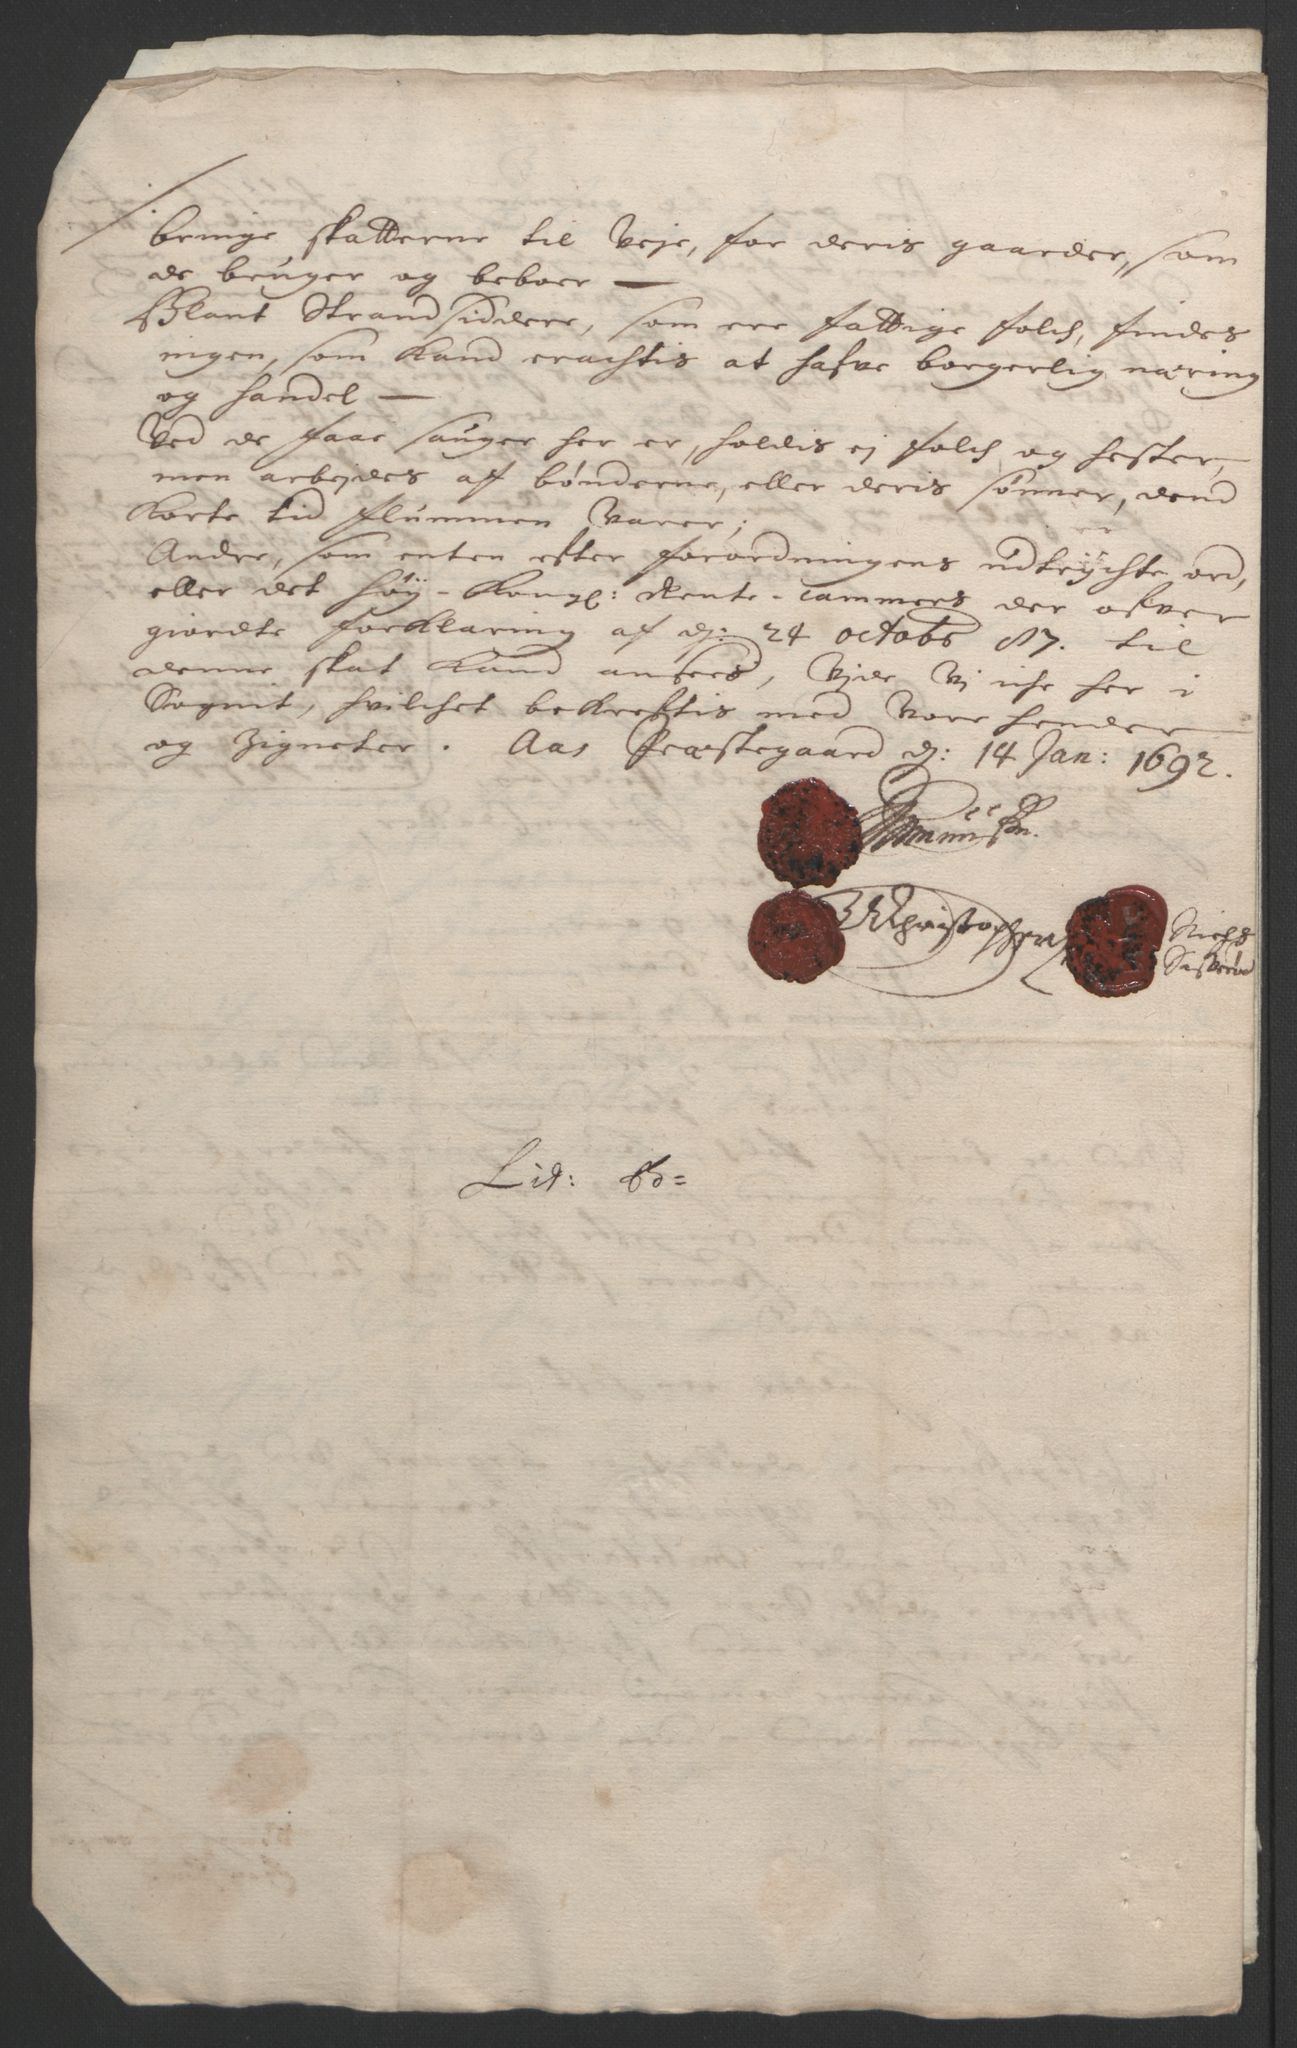 bringe skatterne til Veje, for deris gaarder, som
de bruger og beboer —
Blant Strandsiddere, som ere fattige folch, findes
ingen, som kand erachtis at hafve borgerlig næring
og handel —
Ved de faae sauger her er, holdis ej folch og hester,
men arbejdes af bønderne, eller deris sønner, dend
korte tid flummen varer;
Andre, som enten efter forordningens udtrychte ord,
eller det høy-Kongl: Rente-Cammers der ofver
giordte forklaring af dj: 24 octobr 87. til
denne skat kand ansees, vide vj iche her i
Sognit, hvilchet bekreftis med vore hender
og Zigneter. Aas Præstegaard dj: 14 Jan: 1692.
Christophersen
Niels
Lit: